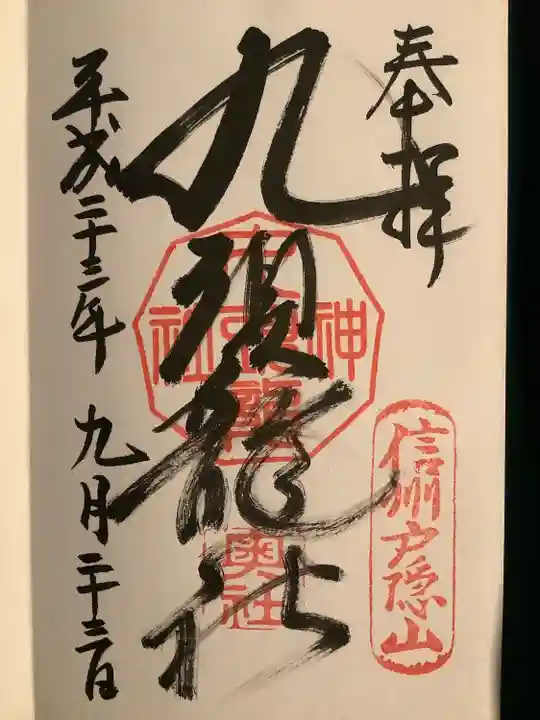 奉拝
信州戸隠山
九頭龍社
奥社
平成二十三年九月二十三日